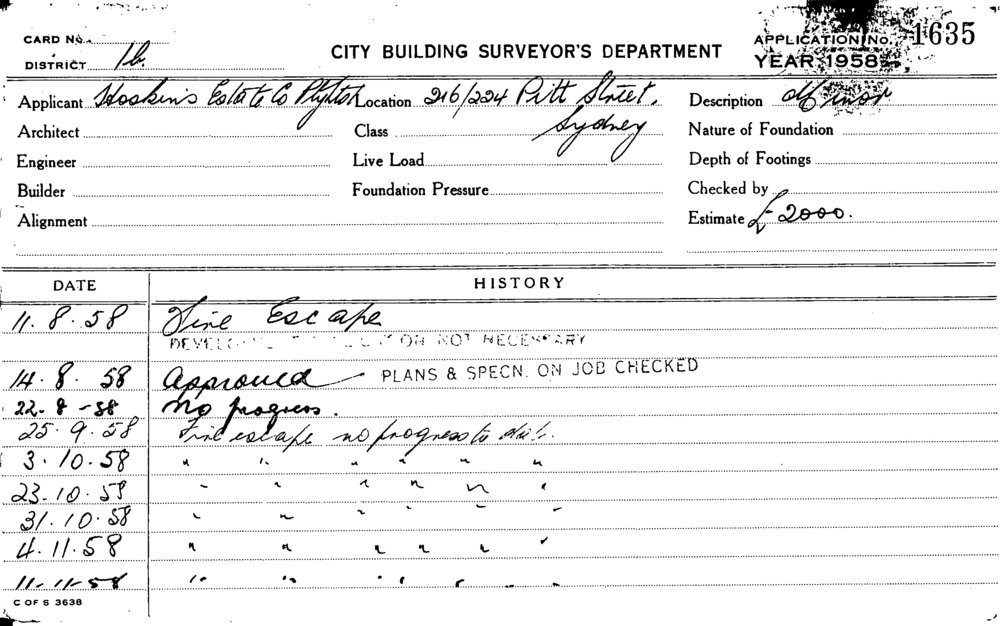 CARD No. CITY BUILDING SURVEYOR'S DEPARTMENT APPLICATION No. 1635
DISTRICT 1b. YEAR 1958
Applicant Hoskins Estate Co Pty Ltd Location 216/224 Pitt Street, Description Minor
Architect Class Sydney Nature of Foundation
Engineer Live Load Depth of Footings
Builder Foundation Pressure Checked by
Alignment Estimate £2000.
DATE HISTORY
11.8.58 Fire Escape
NOT NECESSARY
14.8.58 Approved — PLANS & SPECN. ON JOB CHECKED
22-8-58 No progress.
25.9.58 Fire escape no progress to date.
3.10.58 " " " " " "
23.10.58 " " " " " "
31.10.58 " " " " " "
4.11.58 " " " " " "
11-11-58 " " " " " "
C OF S 3638